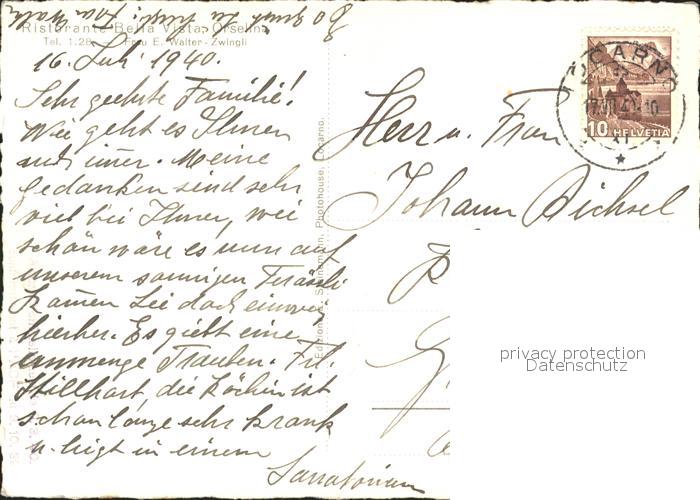 Ristorante Bella Vista, Orselina
Tel. 1.28 Frau E. Walter-Zwingli
16. Juli 1940.
Sehr geehrte Familie!
Wie geht es Ihnen
auch immer. Meine
gedanken sind sehr
viel bei Ihnen, wie
schön wäre es nun auf
unserem sonnigen
kämen Sie doch einmal
hierher. Es giebt eine
unmenge Trauben. Frl.
Stillhart, die Köchin ist
schon lange sehr krank
u. liegt in einem
Sanatorium
Steinemann, Photohouse, Locarno.
LOCARNO
17.VII.40-10
10 HELVETIA
Herr u. Frau
Johann Bichsel
privacy protection
Datenschutz